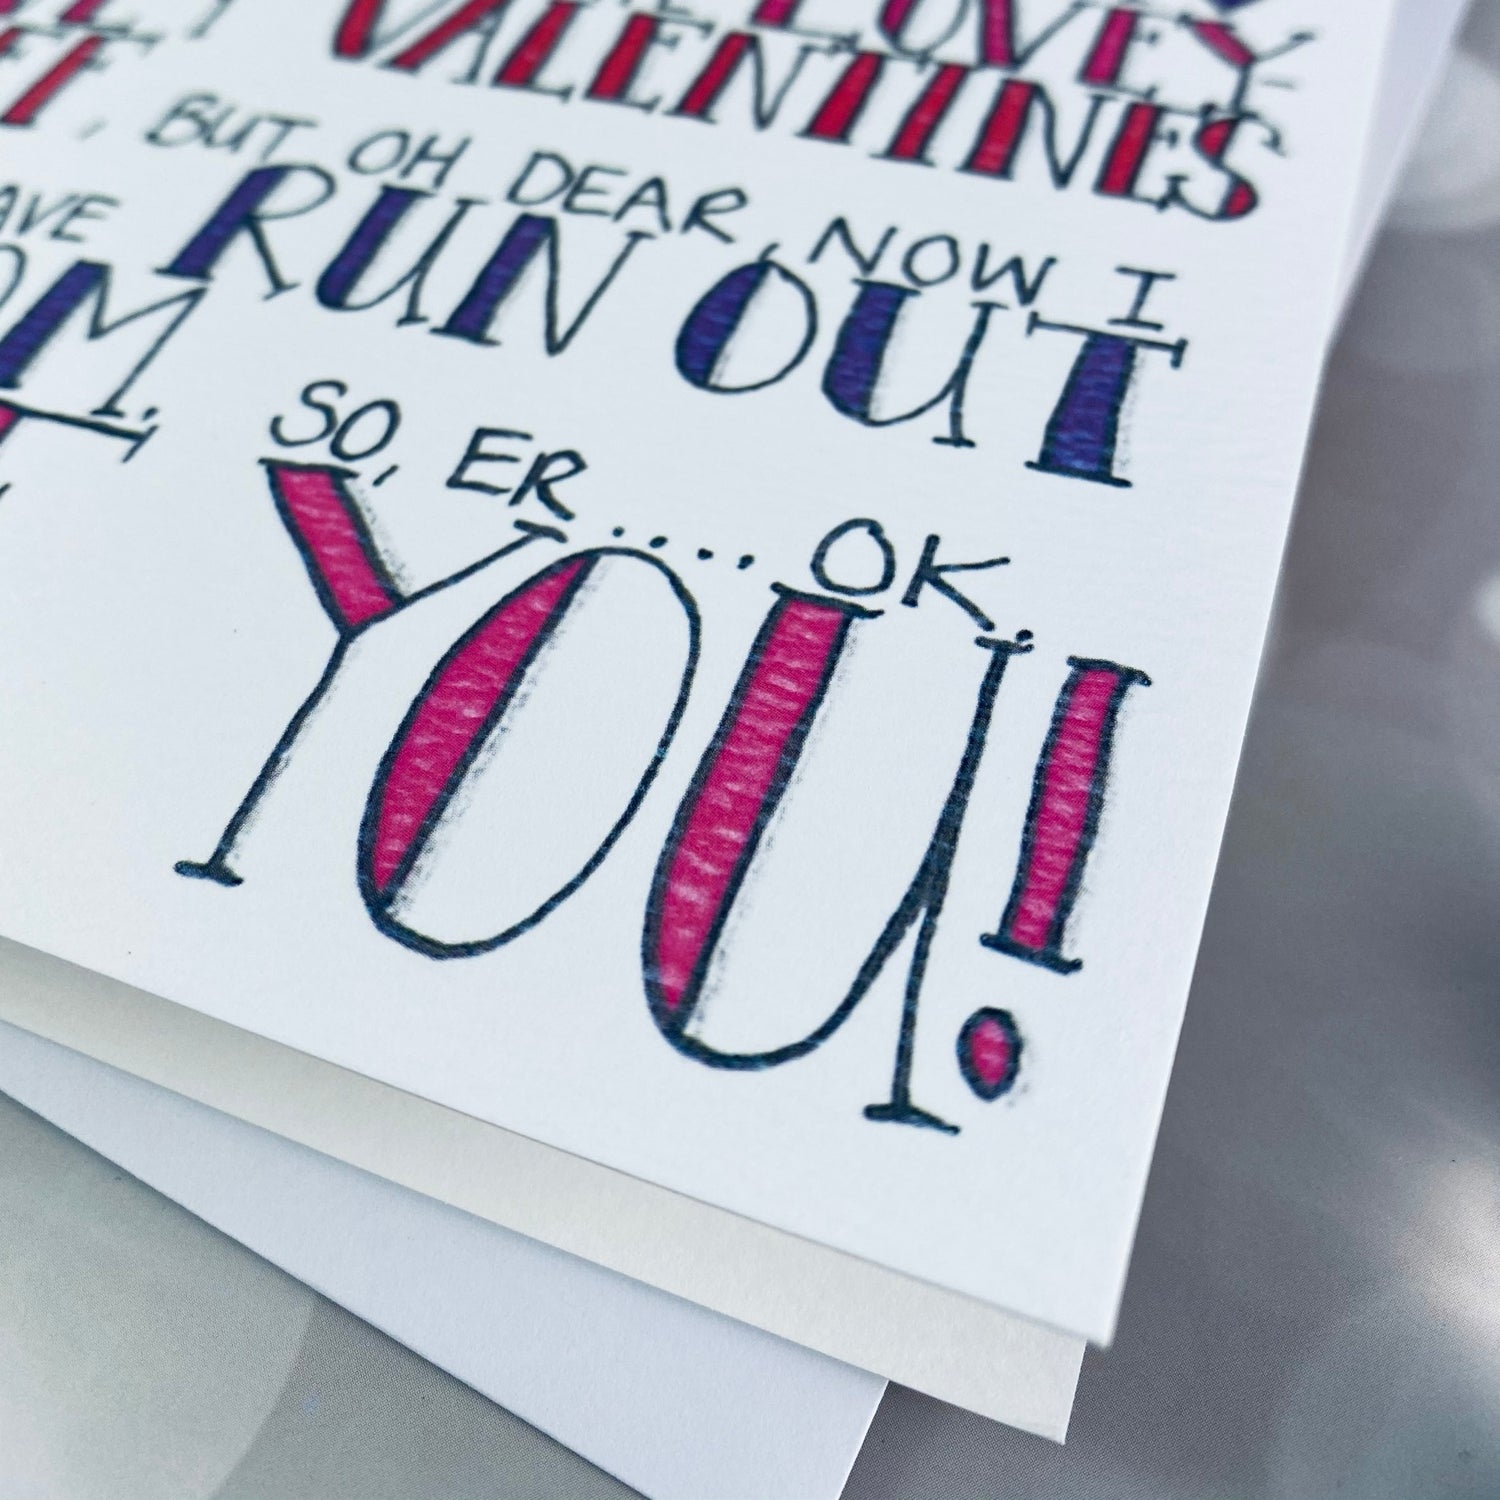 LOVEY
VALENTINES
, BUT OH DEAR, NOW I
AVE RUN OUT
OM,
SO, ER .... OK,
YOU!